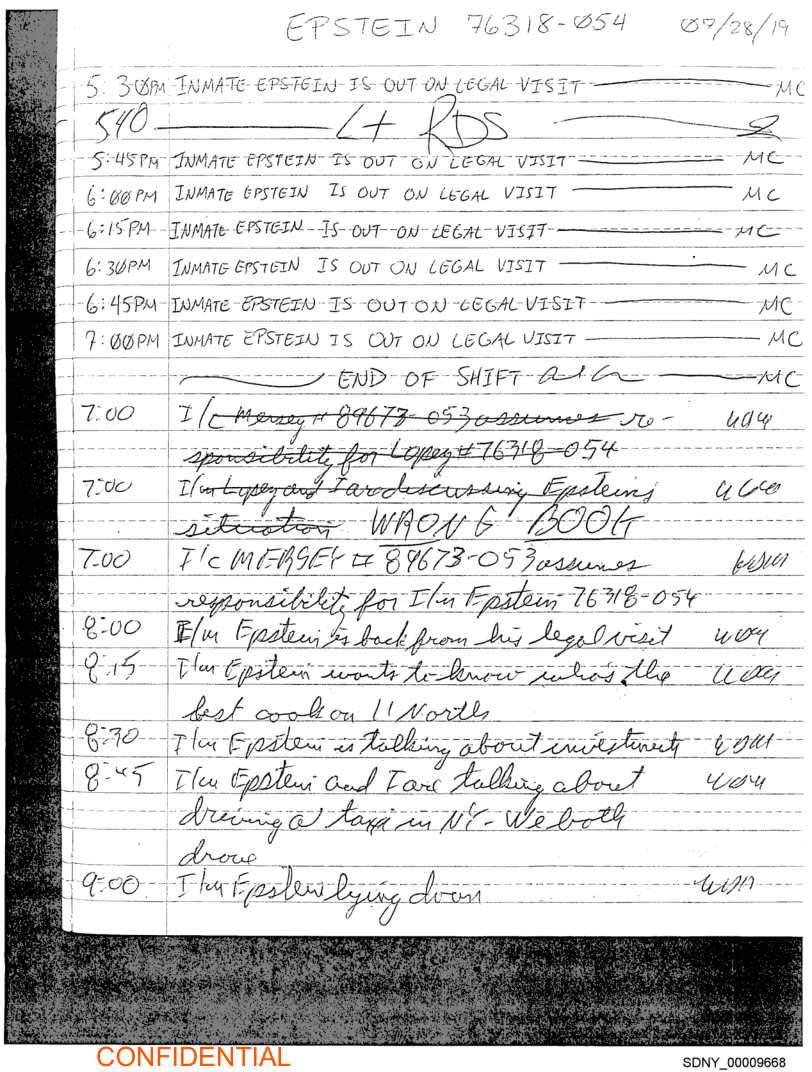 EPSTEIN 76318-054 07/28/19
5:30PM INMATE EPSTEIN IS OUT ON LEGAL VISIT MC
540 Lt RDS
5:45PM INMATE EPSTEIN IS OUT ON LEGAL VISIT MC
6:00PM INMATE EPSTEIN IS OUT ON LEGAL VISIT MC
6:15PM INMATE EPSTEIN IS OUT ON LEGAL VISIT MC
6:30PM INMATE EPSTEIN IS OUT ON LEGAL VISIT MC
6:45PM INMATE EPSTEIN IS OUT ON LEGAL VISIT MC
7:00PM INMATE EPSTEIN IS OUT ON LEGAL VISIT MC
END OF SHIFT MC
7:00 I/c Mersey # 89673-053 assumes re-
sponsibility for Lopez # 76318-054
7:00 I/m Lopez and I are discussing Epsteins
situation WRONG BOOK
7:00 I/c MERSEY # 89673-053 assumes
responsibility for I/m Epstein 76318-054
8:00 I/m Epstein is back from his legal visit
8:15 I/m Epstein wants to know who's the
best cook on 11 North
8:30 I/m Epstein is talking about investments
8:45 I/m Epstein and I are talking about
driving a taxi in NY - We both
drove
9:00 I/m Epstein lying down
CONFIDENTIAL
SDNY_00009668